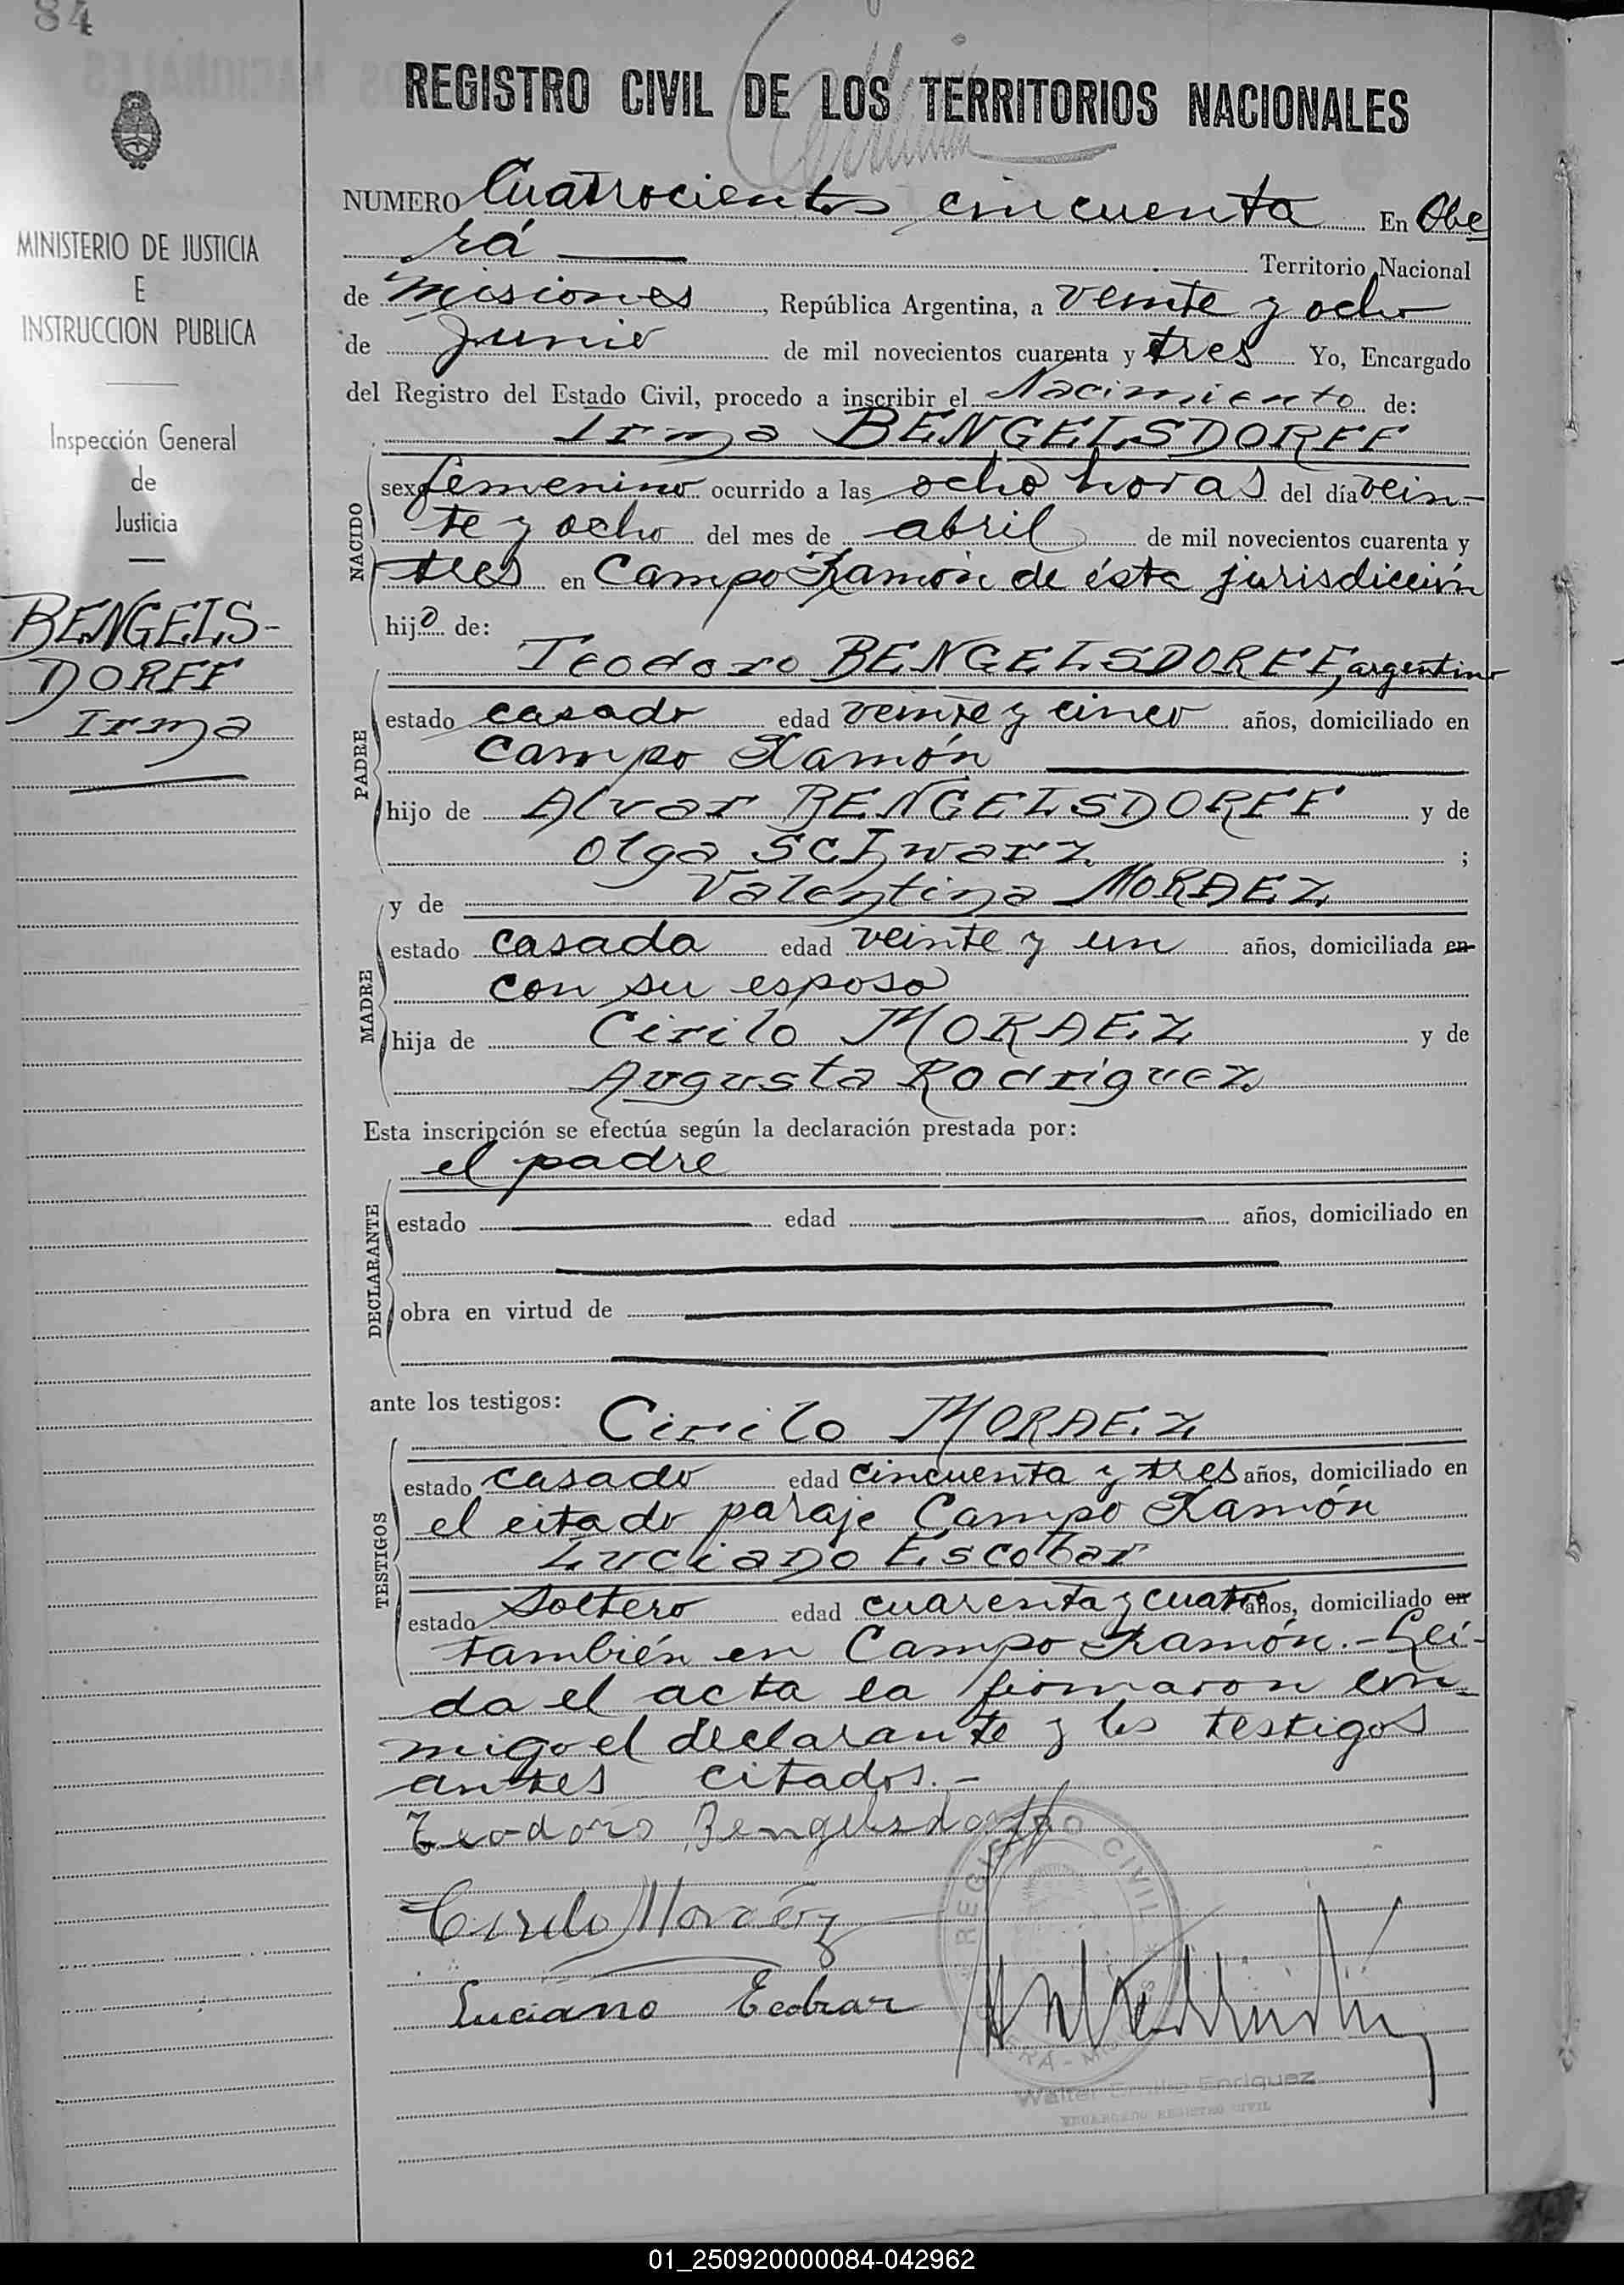 84
REGISTRO CIVIL DE LOS TERRITORIOS NACIONALES
MINISTERIO DE JUSTICIA
E
INSTRUCCION PUBLICA
Inspección General
de
Justicia
BENGELS-
DORFF
Irma
NUMERO Cuatrocientos cincuenta En Obe
rá Territorio Nacional
de Misiones, República Argentina, a veinte y ocho
de Junio de mil novecientos cuarenta y tres Yo, Encargado
del Registro del Estado Civil, procedo a inscribir el Nacimiento de:
Irma BENGELSDORFF
NACIDO
sexo femenino ocurrido a las ocho horas del día vein-
te y ocho del mes de abril de mil novecientos cuarenta y
tres en Campo Ramón de ésta jurisdicción
hija de:
Teodoro BENGELSDORFF, argentino
PADRE
estado casado edad veinte y cinco años, domiciliado en
Campo Ramón
hijo de Alvar BENGELSDORFF y de
Olga SCHwarz ;
y de Valentina MORAEZ
MADRE
estado casada edad veinte y un años, domiciliada en
con su esposo
hija de Cirilo MORAEZ y de
Augusta Rodriguez
Esta inscripción se efectúa según la declaración prestada por:
el padre
DECLARANTE
estado edad años, domiciliado en
obra en virtud de
ante los testigos:
Cirilo MORAEZ
TESTIGOS
estado casado edad cincuenta y tres años, domiciliado en
el citado paraje Campo Ramón
Luciano Escobar
estado Soltero edad cuarenta y cuatro años, domiciliado en
también en Campo Ramón.- Leí-
da el acta la firmaron con-
migo el declarante y los testigos
antes citados.-
Teodoro Bengelsdorff
Cirilo Moraéz
Luciano Ecobar
REGISTRO CIVIL
Walter Enriquez
ENCARGADO REGISTRO CIVIL
01_250920000084-042962